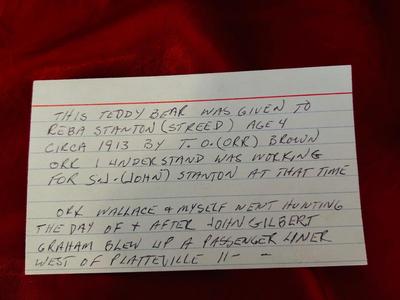 THIS TEDDY BEAR WAS GIVEN TO
REBA STANTON (STREED) AGE 4
CIRCA 1913 BY T. O. (ORR) BROWN
ORR I UNDERSTAND WAS WORKING
FOR S.J. (JOHN) STANTON AT THAT TIME
ORR WALLACE & MYSELF WENT HUNTING
THE DAY OF & AFTER JOHN GILBERT
GRAHAM BLEW UP A PASSENGER LINER
WEST OF PLATTEVILLE 11- -